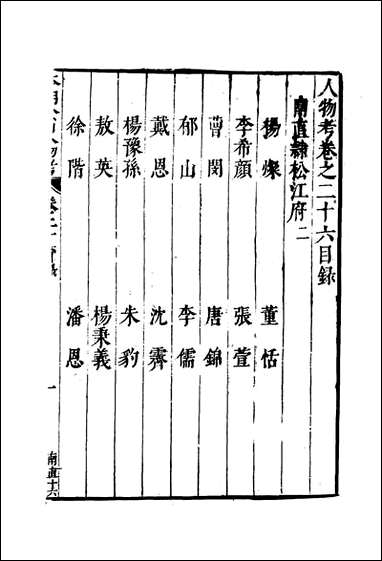 人物考卷之二十六目録
南直隸松江府二
楊燦 董恬
李希顔 張萱
曹閔 唐錦
郁山 李儒
戴恩 沈霽
楊豫孫 朱豹
敖英 楊秉義
徐階 潘恩
一
南直十六